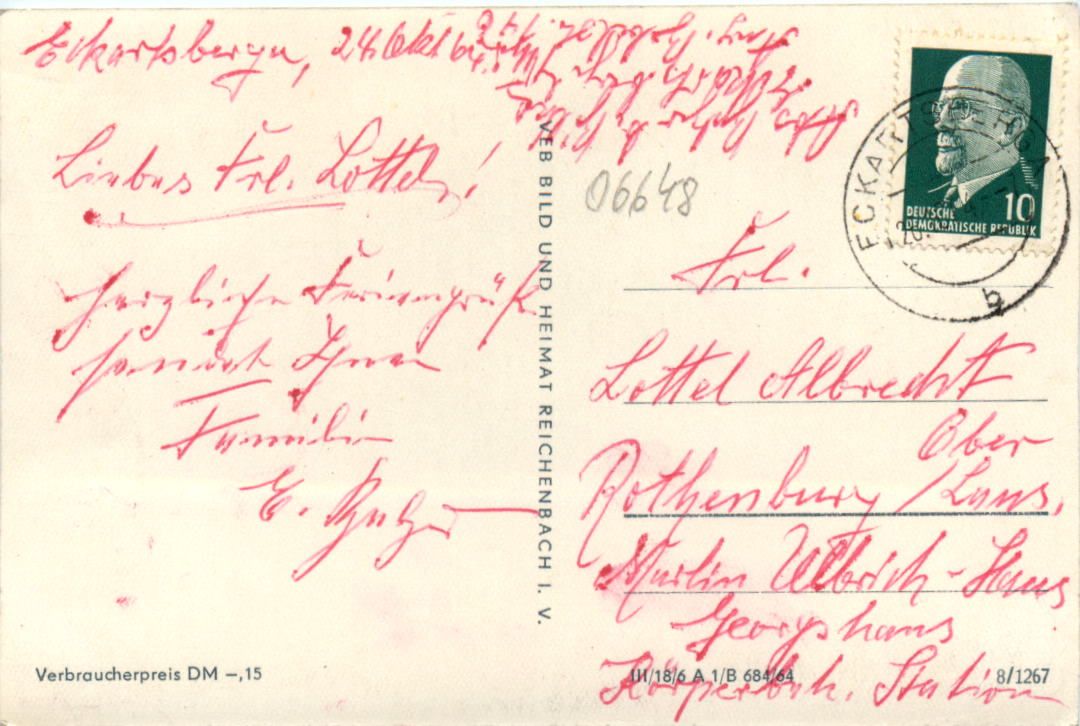 Eckartsberga, 24. Okt. 64
Liebes Frl. Lottel!
herzliche Feriengrüße
sendet Ihnen
Familie
E.
VEB BILD UND HEIMAT REICHENBACH I. V.
06648
DEUTSCHE
DEMOKRATISCHE REPUBLIK
10
ECKARTSBERGA
b
Frl.
Lottel Albrecht
Ober
Rothenburg / Laus.
Martin Ulbrich-Haus
Georgshaus
Körperbeh. Station
Verbraucherpreis DM –,15
III/18/6 A 1/B 684/64
8/1267